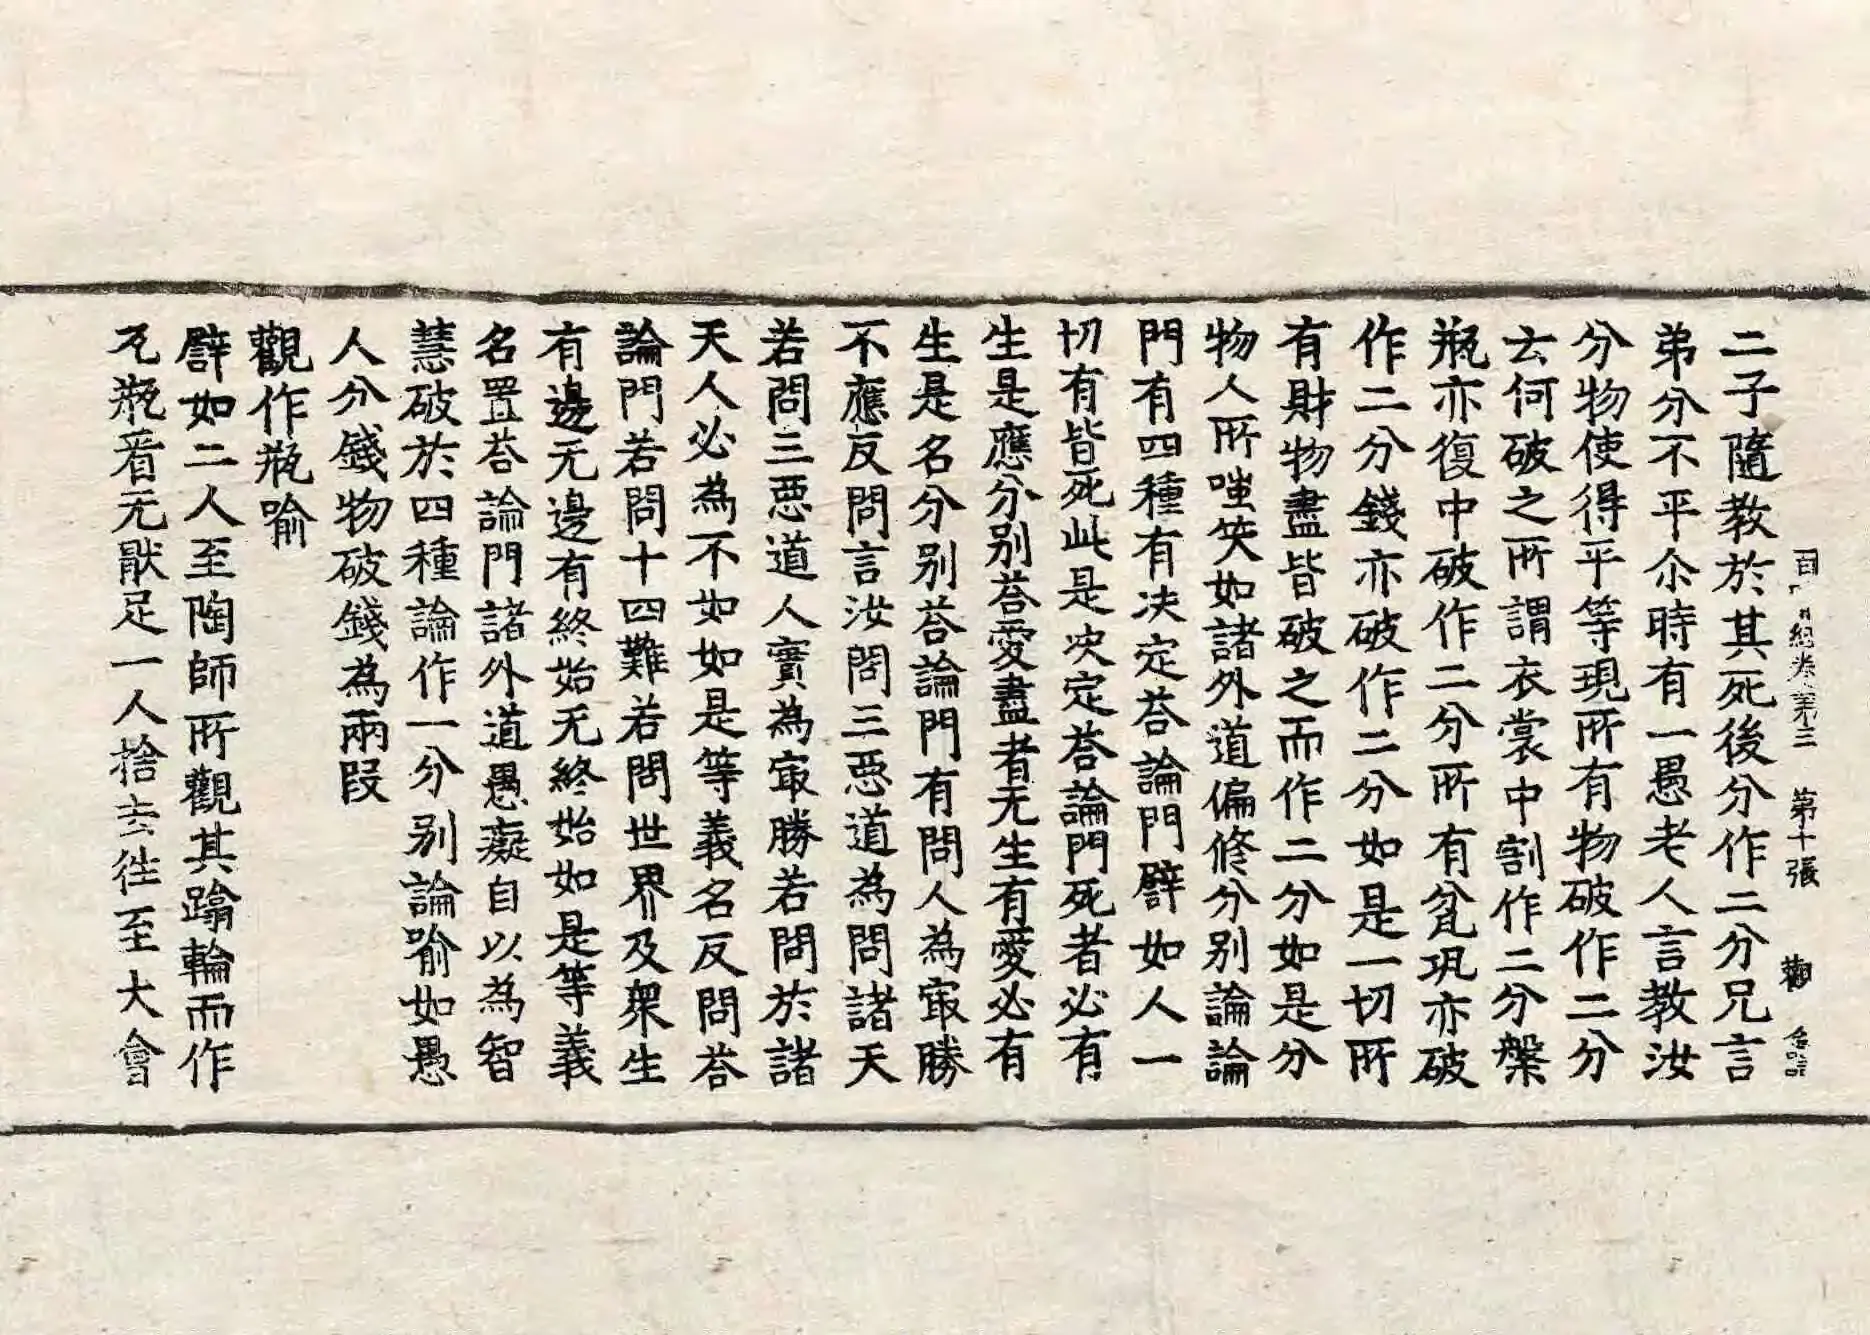 經卷第三 第十張 觀
二子隨教於其死後分作二分兄言
弟分不平尒時有一愚老人言教汝
分物使得平等現所有物破作二分
云何破之所謂衣裳中割作二分槃
瓶亦復中破作二分所有瓫瓨亦破
作二分錢亦破作二分如是一切所
有財物盡皆破之而作二分如是分
物人所嗤笑如諸外道偏修分別論論
門有四種有决定荅論門譬如人一
切有皆死此是决定荅論門死者必有
生是應分別荅愛盡者无生有愛必有
生是名分別荅論門有問人為㝡勝
不應反問言汝問三惡道為問諸天
若問三惡道人實為㝡勝若問於諸
天人必為不如如是等義名反問荅
論門若問十四難若問世界及衆生
有邊无邊有終始无終始如是等義
名置荅論門諸外道愚癡自以為智
慧破於四種論作一分別論喻如愚
人分錢物破錢為兩段
觀作瓶喻
譬如二人至陶師所觀其蹋輪而作
瓦瓶看无猒足一人捨去往至大會